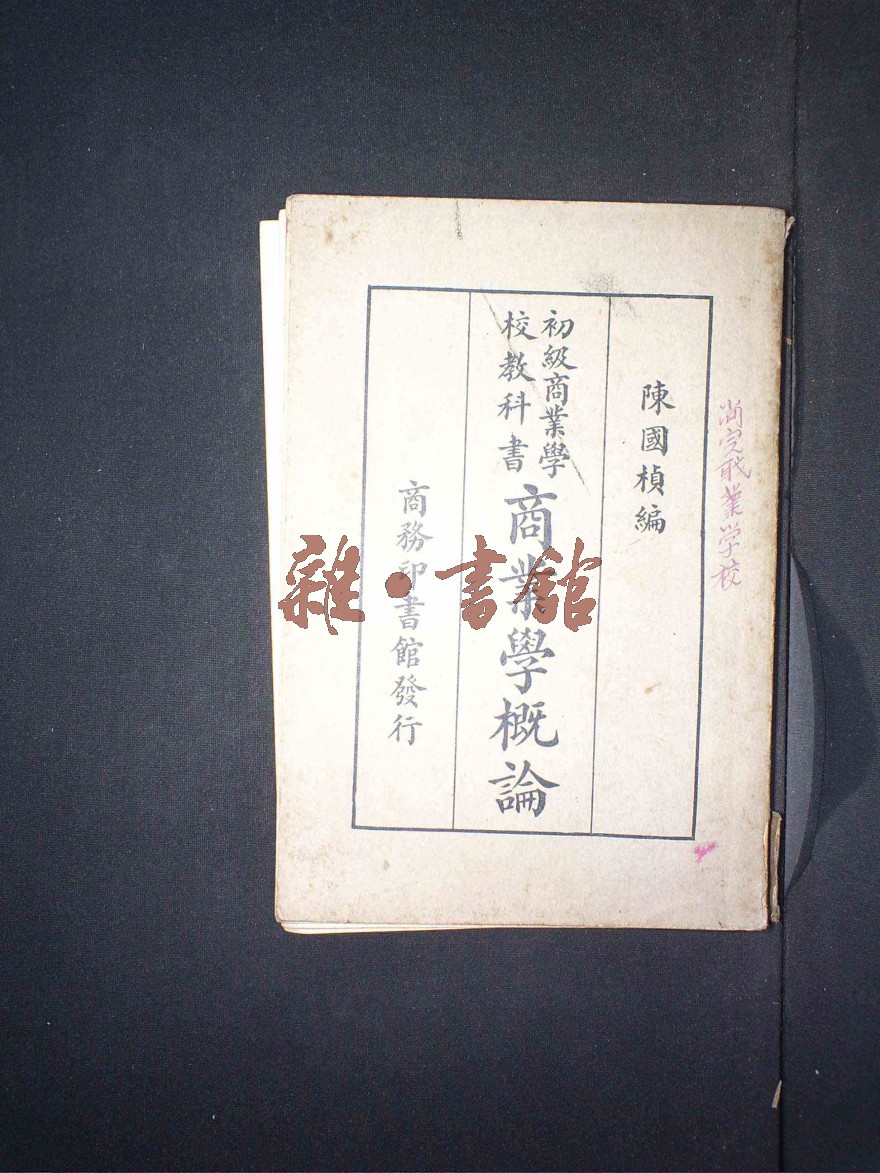 尚完職業学校
陳國楨編
初級商業學
校教科書
商業學概論
商務印書館發行
雜·書館